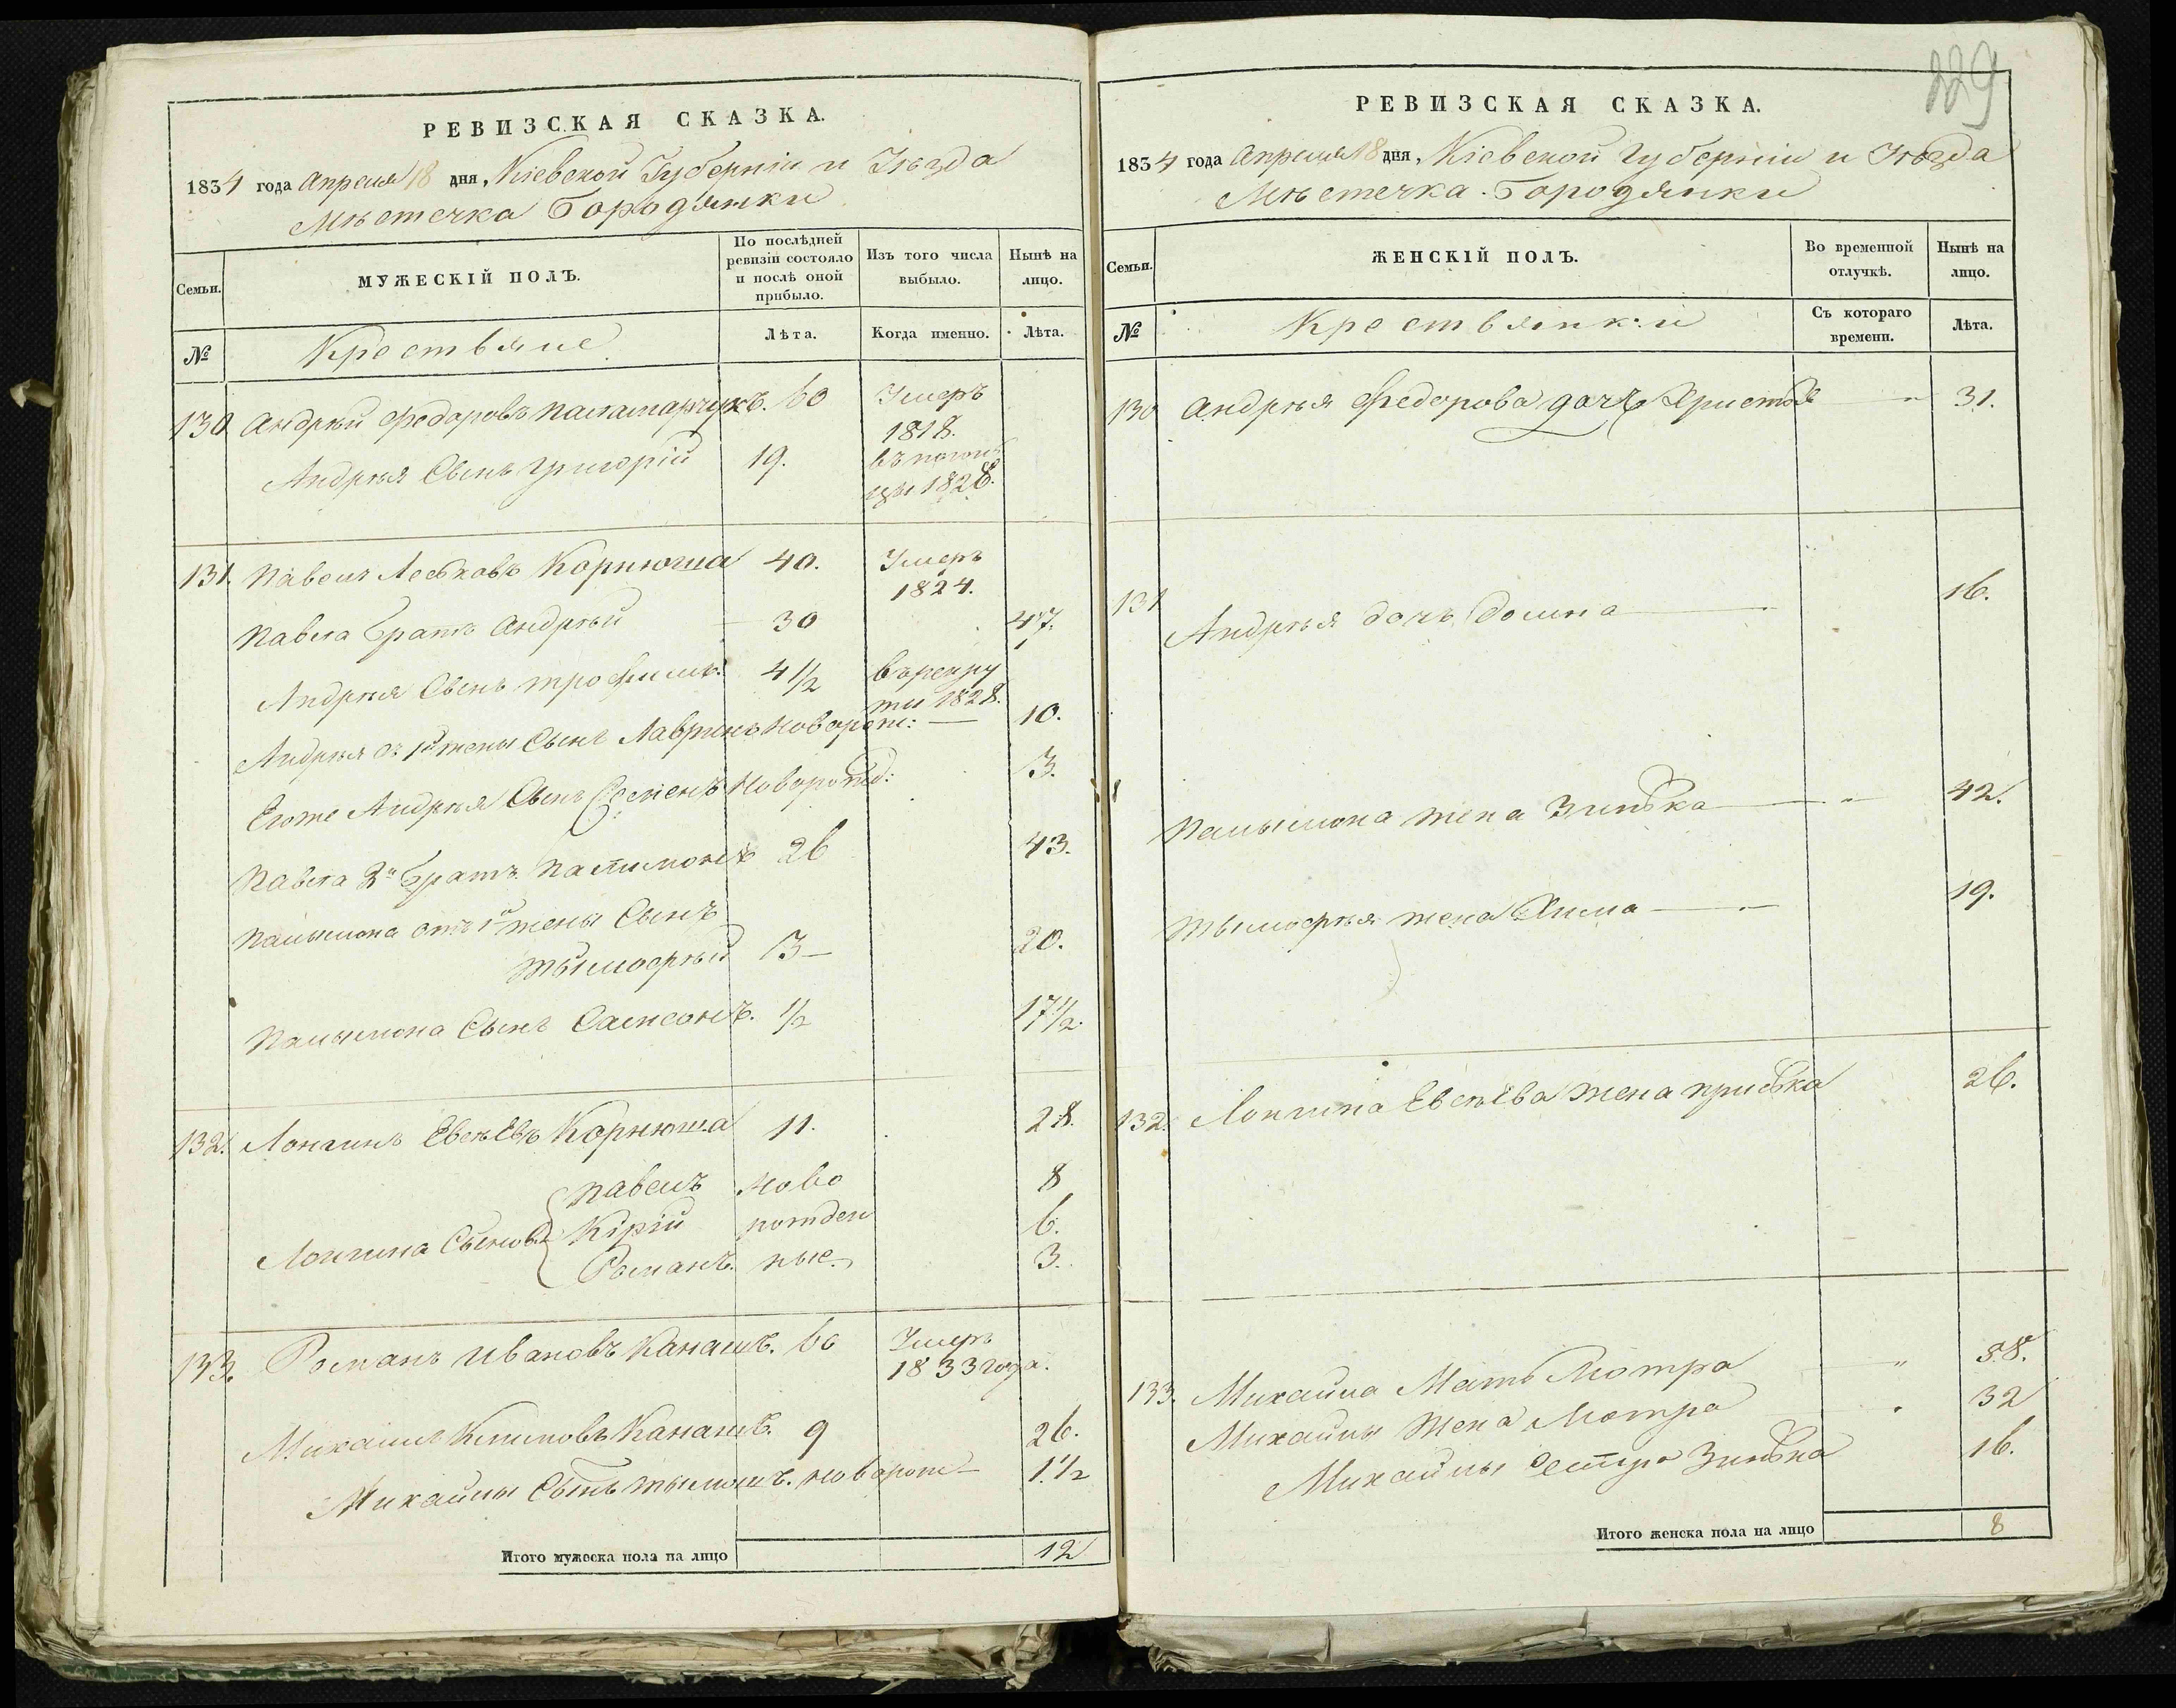 РЕВИЗСКАЯ СКАЗКА.
1834 года Апреля 18 дня, Кіевской Губерніи и Уѣзда
Мѣстечка Бородянки
Семьи.
МУЖЕСКІЙ ПОЛЪ.
По послѣдней ревизіи состояло и послѣ оной прибыло.
Изъ того числа выбыло.
Нынѣ на лицо.
№
Крестьяне
Лѣта.
Когда именно.
Лѣта.
130 Андрѣй Федоровъ Паламарчукъ. 60 Умеръ 1818.
Андрѣя Сынъ Григорій 19. 1828.
131. Павелъ Леськовъ Корнюша 40. Умеръ 1824.
Павла братъ Андрѣй 30 47.
Андрѣя Сынъ Трофимъ 4 1/2 въ рекруты 1828.
Андрѣя съ 1й жены Сынъ Лавринъ новорож: — 10.
Егоже Андрѣя Сынъ Семенъ Новорожд: 3.
Павла 2й братъ Палимонъ 26 43.
Палымона отъ 1й жены Сынъ
Тымофѣй 3 — 20.
Палымона Сынъ Самсонъ. 1/2 17 1/2.
132. Лонгинъ Евсѣевъ Корнюша 11. 28.
Павелъ ново 8
Лонгина Сыновья Кірій рожден 6.
Романъ. ные. 3.
133. Романъ Ивановъ Канашъ. 60 Умеръ 1833 года.
Михаилъ Климовъ Канашъ. 9 26.
Михайлы Сынъ Тымошъ. новорож — 1 1/2
Итого мужеска пола на лицо 12
229
РЕВИЗСКАЯ СКАЗКА.
1834 года Апреля 18 дня, Кіевской Губерніи и Уѣзда
Мѣстечка Бородянки
Семьи.
ЖЕНСКІЙ ПОЛЪ.
Во временной отлучкѣ.
Нынѣ на лицо.
№
Крестьянки
Съ котораго времени.
Лѣта.
130 Андрѣя Федорова дочь Христя " 31.
131 Андрѣя дочь Домна — 16.
Палымона жена Зинька — " 42.
Тымофѣя жена Хима — 19.
132. Лонгина Евсѣева жена Приська 26.
133. Михайла Мать Мотра " 58.
Михайлы Жена Мотра 32
Михайлы Сестра Зинька 16.
Итого женска пола на лицо 8